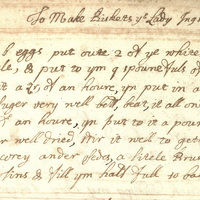 To Make Biskets yt Lady Ingr
eggs put oute 2 of ye white
& put to ym 9 spounefuls of
it a 2r. of an houre, yn put in a
suger very well bet, beat it all on
of an houre, yn put to it a pou
well dried, stir it well to get
ander sedes, a litele
fins & fill ym half full so ba